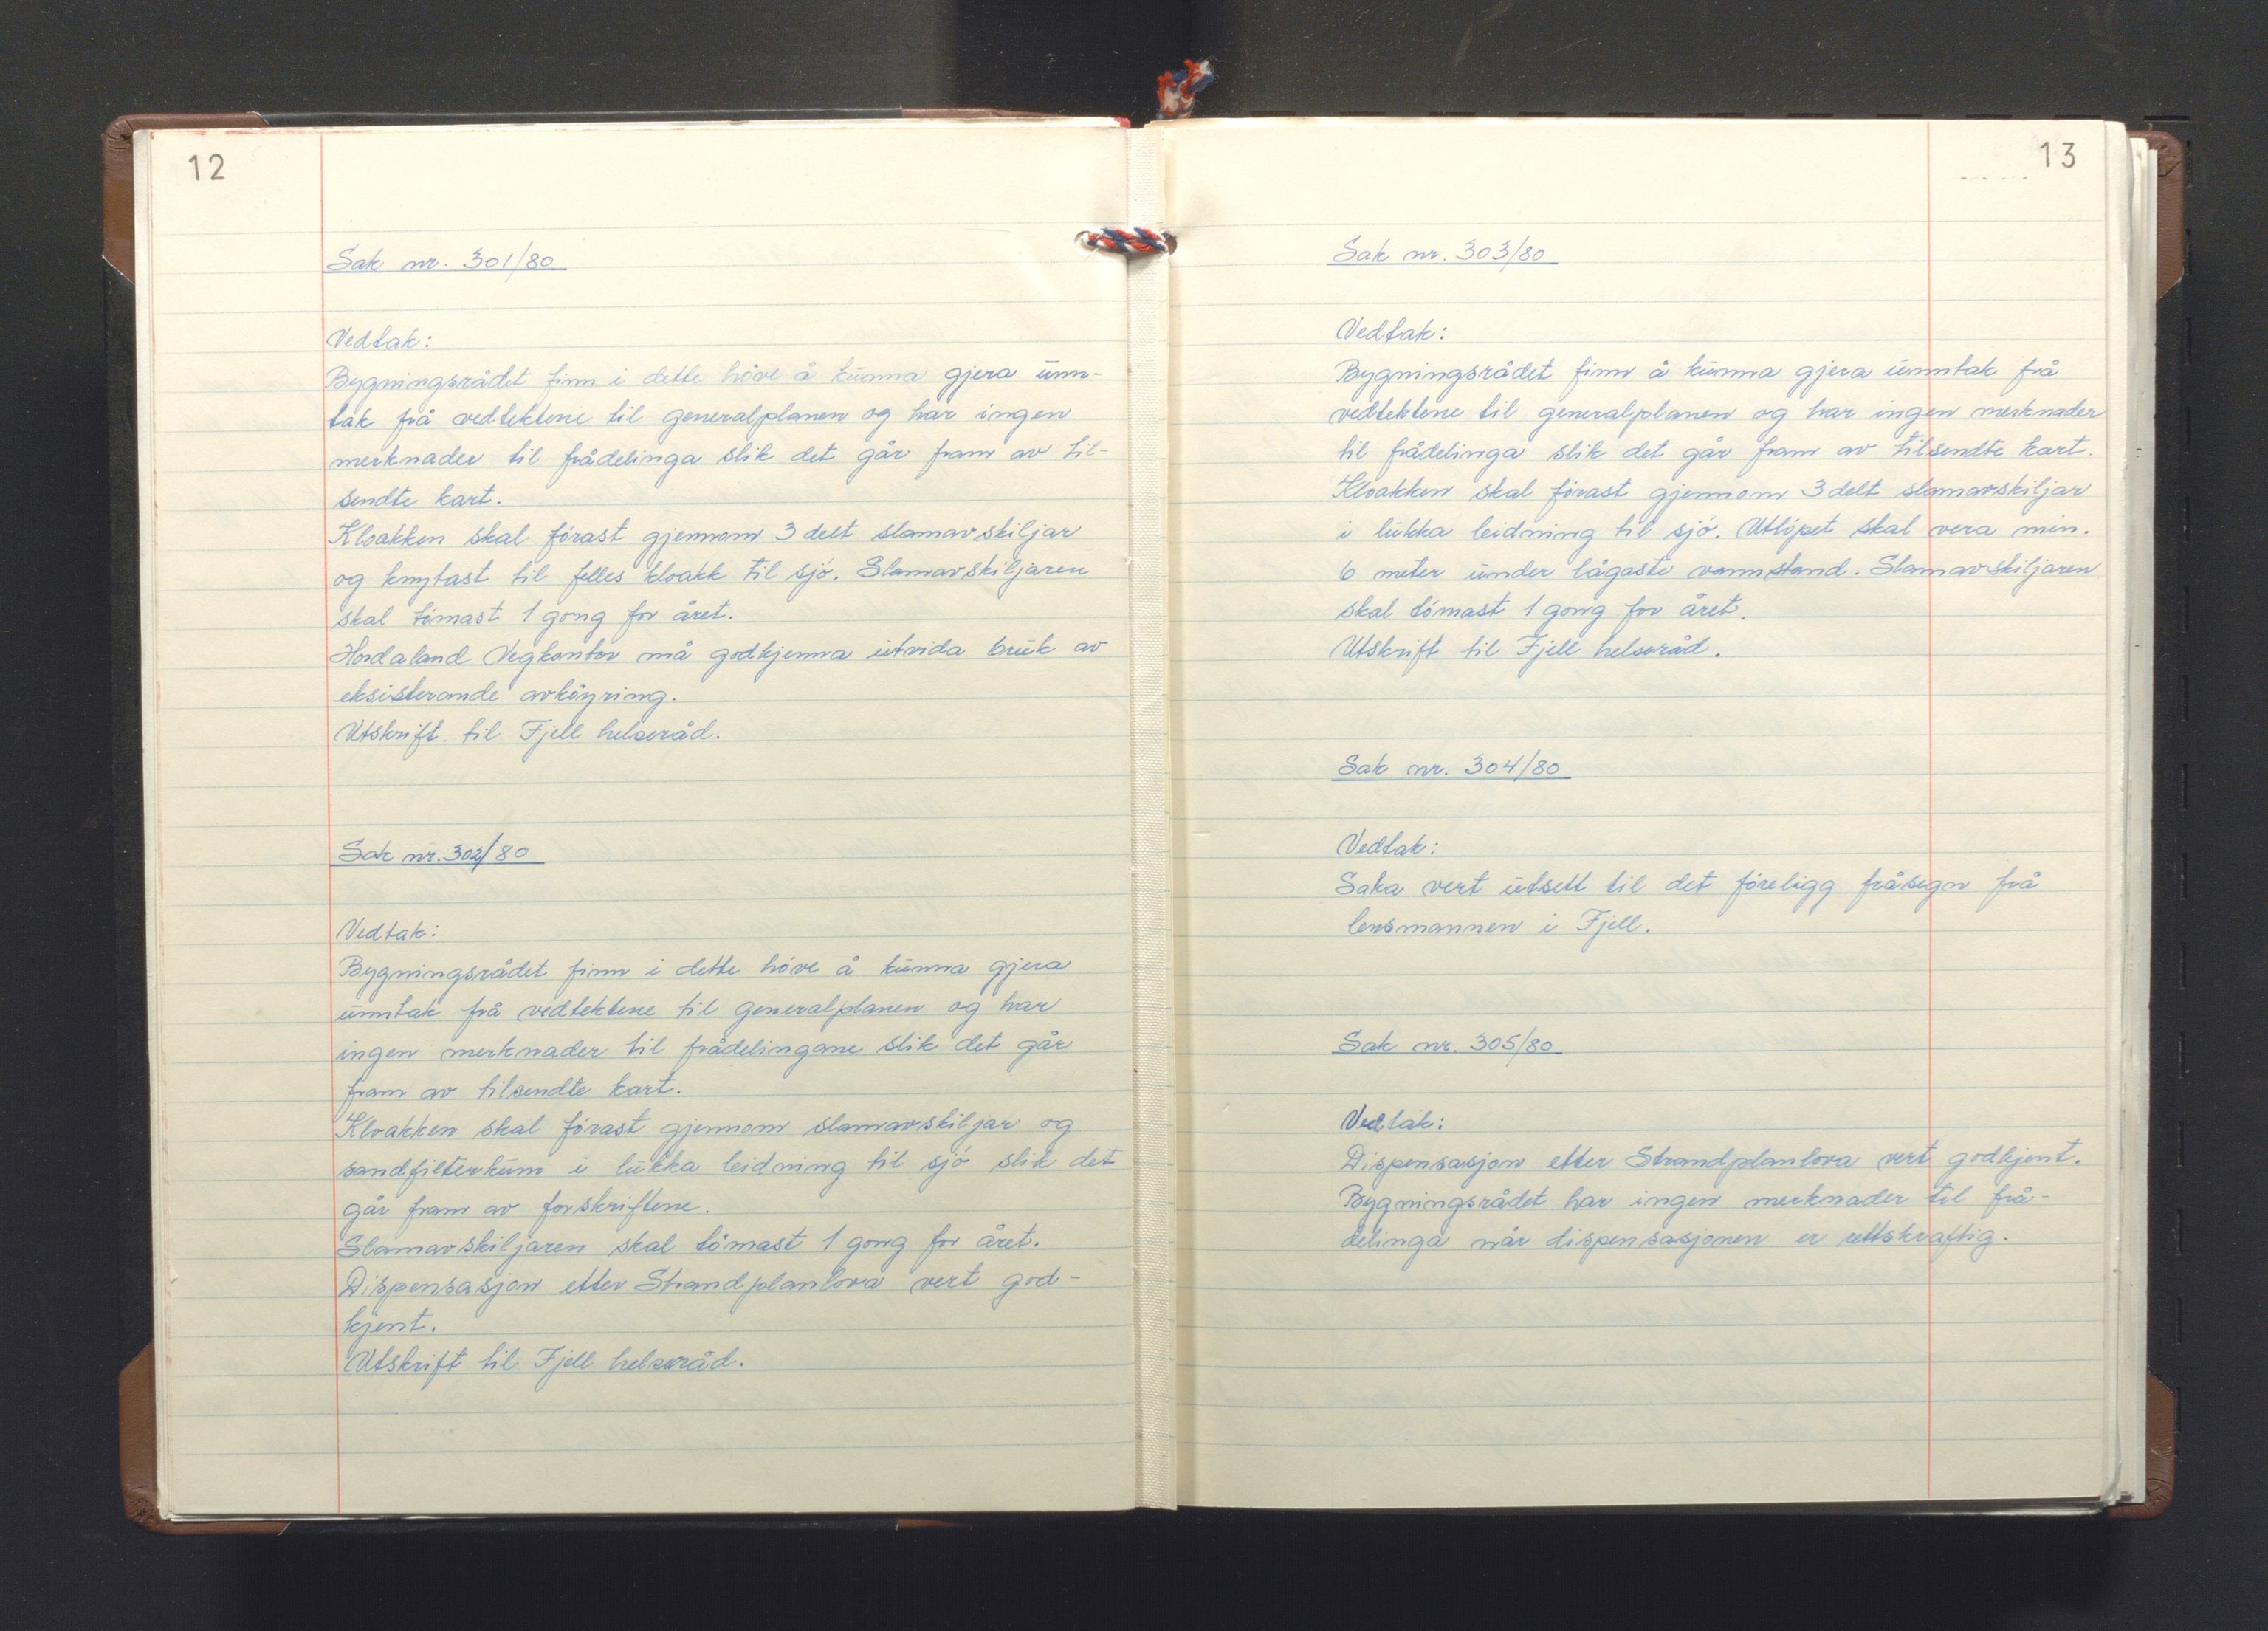 12
Sak nr. 301/80
Vedtak:
Bygningsrådet finn i dette höve å kunna gjera unn-
tak frå vedtektene til generalplanen og har ingen
merknader til frådelinga slik det går fram av til-
sendte kart.
Kloakken skal förast gjennom 3 delt slamavskiljar
og knytast til felles kloakk til sjö. Slamavskiljaren
skal tömast 1 gong for året.
Hordaland Vegkontor må godkjenna utvida bruk av
eksisterande avköyring.
Utskrift til Fjell helseråd.
Sak nr. 302/80
Vedtak:
Bygningsrådet finn i dette höve å kunna gjera
unntak frå vedtektene til generalplanen og har
ingen merknader til frådelingane slik det går
fram av tilsendte kart.
Kloakken skal förast gjennom slamavskiljar og
sandfilterkum i lukka leidning til sjö slik det
går fram av forskriftene.
Slamavskiljaren skal tömast 1 gong for året.
Dispensasjon etter Strandplanlova vert god-
kjent.
Utskrift til Fjell helseråd.
13
Sak nr. 303/80
Vedtak:
Bygningsrådet finn å kunna gjera unntak frå
vedtektene til generalplanen og har ingen merknader
til frådelinga slik det går fram av tilsendte kart.
Kloakken skal förast gjennom 3 delt slamavskiljar
i lukka leidning til sjö. Utlöpet skal vera min.
6 meter under lågaste vannstand. Slamavskiljaren
skal tömast 1 gong for året.
Utskrift til Fjell helseråd.
Sak nr. 304/80
Vedtak:
Saka vert utsett til det föreligg fråsegn frå
lensmannen i Fjell.
Sak nr. 305/80
Vedtak:
Dispensasjon etter Strandplanlova vert godkjent.
Bygningsrådet har ingen merknader til frå-
delinga når dispensasjonen er rettskraftig.